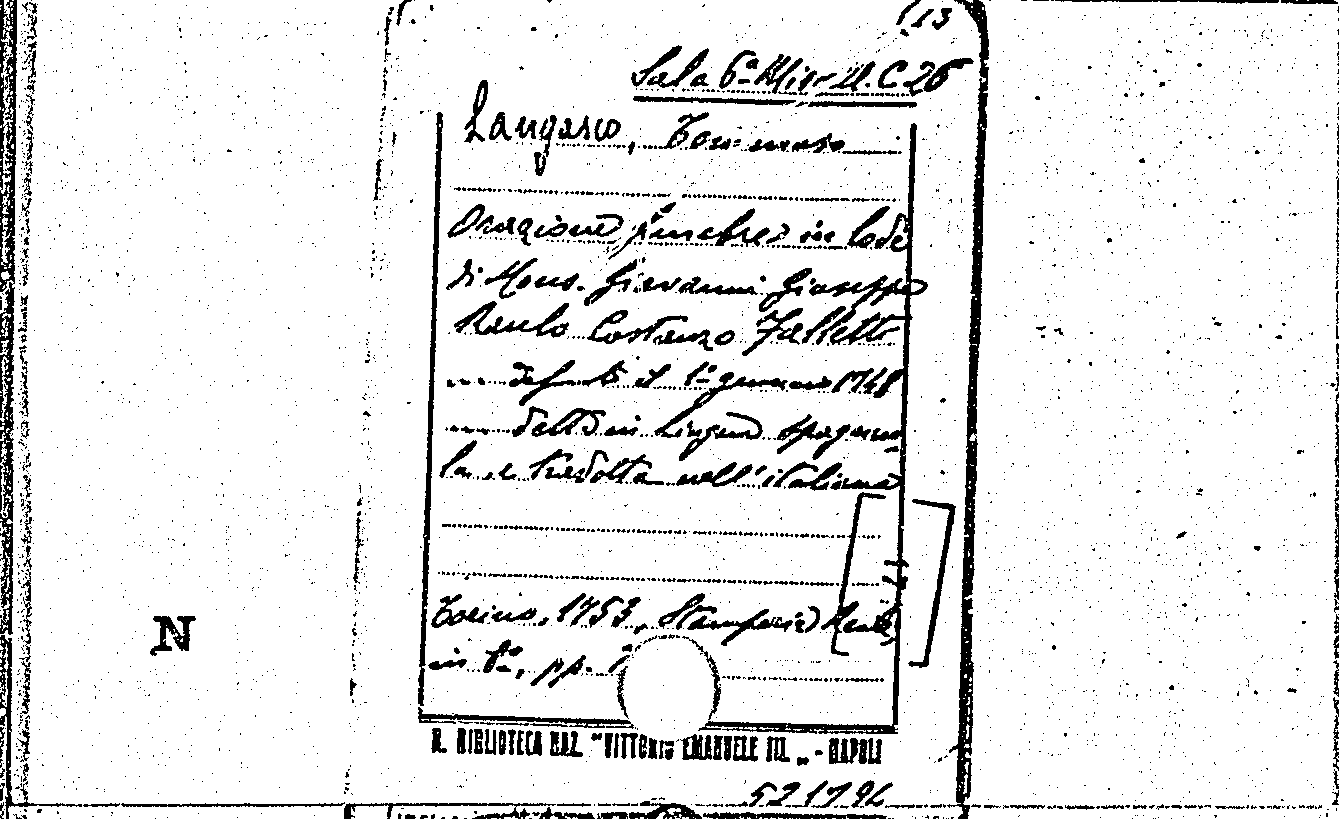 (13
Sala 6ª Misc. U. C 26
Langasco, Tommaso
Orazione funebre in lode
di Mons. Giovanni Giuseppe
Paulo Costanzo Falletti
.... defunto il 1º gennaio 1748
.... detta in lingua spagnuo
la e tradotta nell'italiana
Torino, 1753, Stamperia Reale
in 8º, pp.
N
R. BIBLIOTECA NAZ. "VITTORIO EMANUELE III„ - NAPOLI
521794